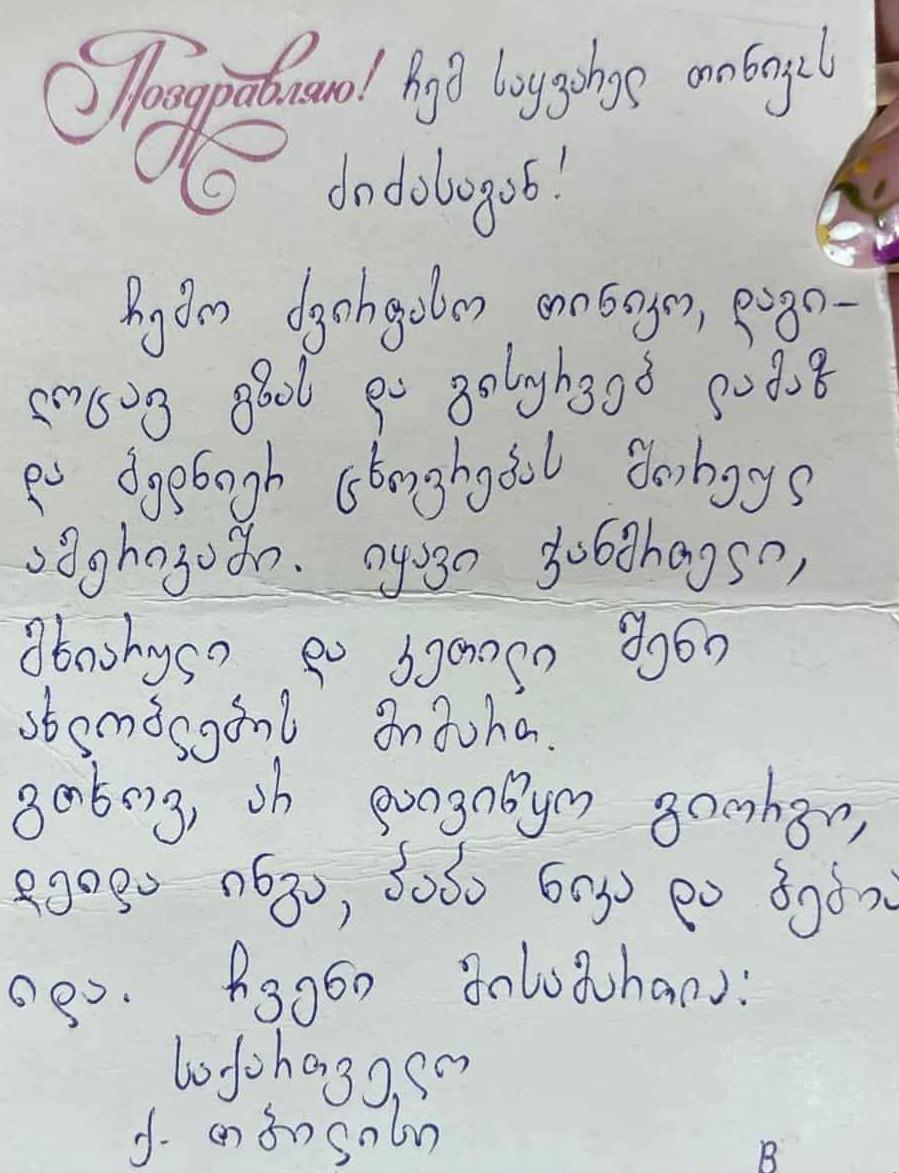 Поздравляю! ჩემ საყვარელ თინიკოს
ძიძასაგან!
ჩემო ძვირფასო თინიკო, დაგი-
ლოცავ გზას და გისურვებ ლამაზ
და ბედნიერ ცხოვრებას შორეულ
ამერიკაში. იყავი ჯანმრთელი,
მხიარული და კეთილი შენი
ახლობლების მიმართ.
გთხოვ, არ დაივიწყო გიორგი,
დეიდა ინგა, პაპა ნიკა და ბებია
იდა. ჩვენი მისამართია:
საქართველო
ქ. თბილისი
В